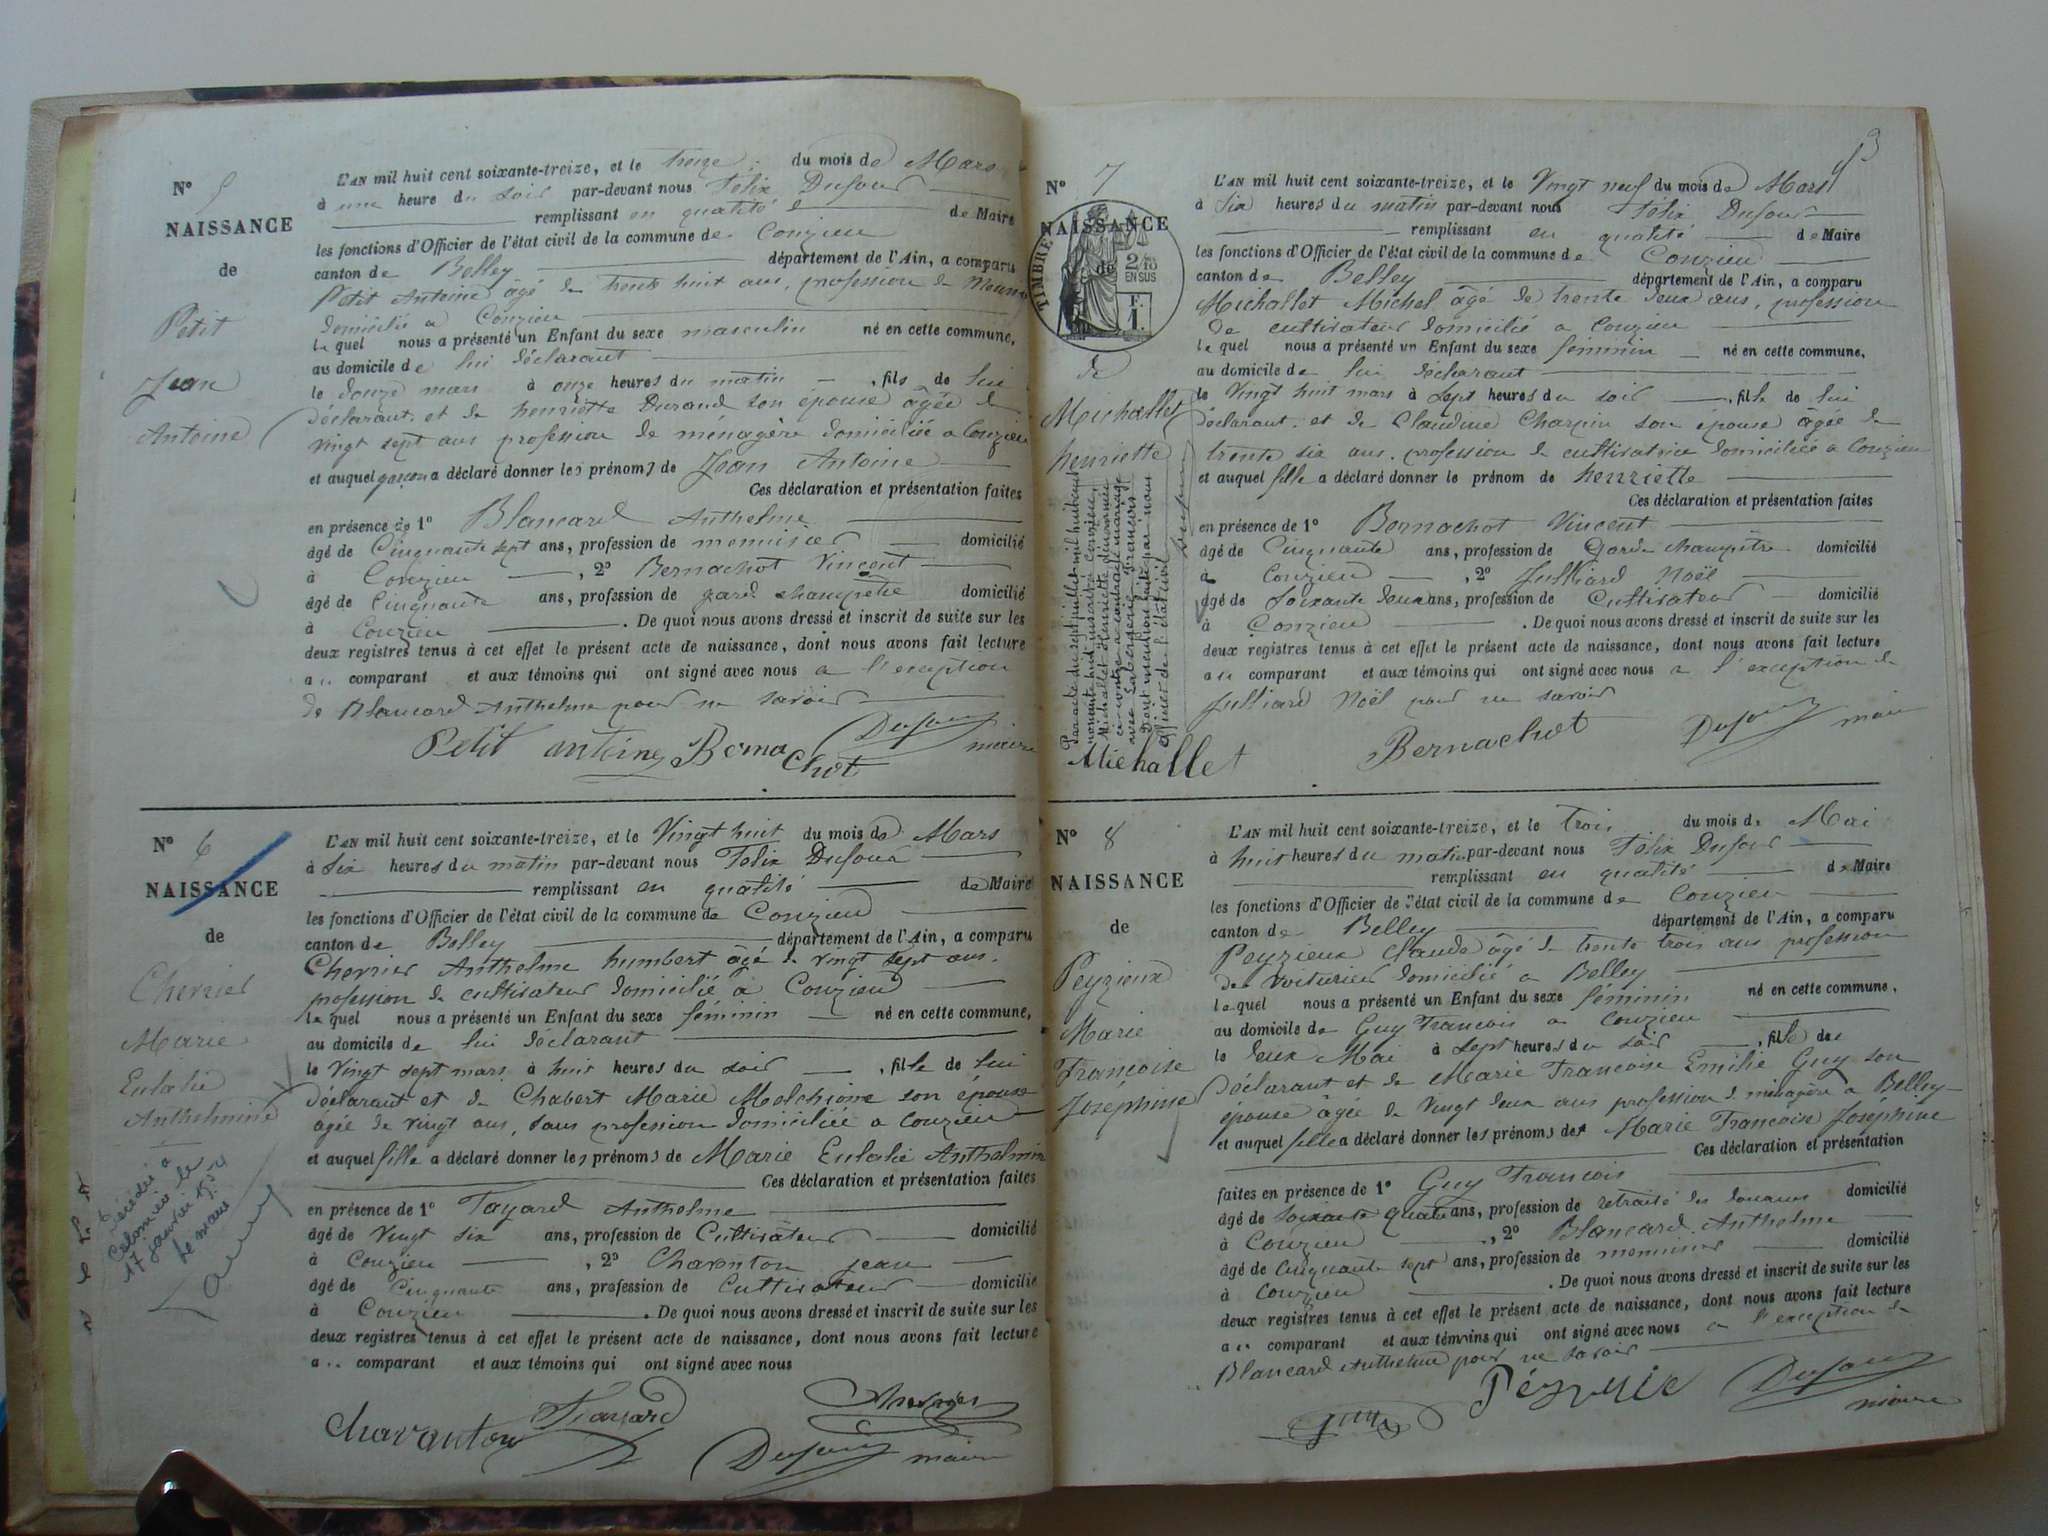 N° 5
NAISSANCE
de
Petit
Jean
Antoine
L'AN mil huit cent soixante-treize, et le treize du mois de Mars
à une heure du soir par-devant nous Félix Dufour
remplissant en qualité de Maire
les fonctions d'Officier de l'état civil de la commune de Conzieu
canton de Belley département de l'Ain, a comparu
Petit Antoine âgé de trente huit ans, profession de
domicilié a Conzieu
le quel nous a présenté un Enfant du sexe masculin né en cette commune,
au domicile de lui déclarant
le douze mars à onze heures du matin, fils de lui
déclarant, et de henriette Durand son épouse âgée de
vingt sept ans profession de ménagère domiciliée a Conzieu
et auquel garçon a déclaré donner les prénoms de Jean Antoine
Ces déclaration et présentation faites
en présence de 1° Blancard Anthelme
âgé de Cinquante sept ans, profession de menuisier domicilié
à Conzieu, 2° Bernachot Vincent
âgé de Cinquante ans, profession de garde champêtre domicilié
à Conzieu. De quoi nous avons dressé et inscrit de suite sur les
deux registres tenus à cet effet le présent acte de naissance, dont nous avons fait lecture
au comparant et aux témoins qui ont signé avec nous a l'exception
de Blancard Anthelme pour ne savoir
Petit antoine Bernachot Dufour maire
N° 6
NAISSANCE
de
Cherrier
Marie
Eulalie
Anthelmine
Décédée à
Colomieu le
17 janvier 1952
Le maire
L'AN mil huit cent soixante-treize, et le Vingt huit du mois de Mars
à Six heures du matin par-devant nous Félix Dufour
remplissant en qualité de Maire
les fonctions d'Officier de l'état civil de la commune de Conzieu
canton de Belley département de l'Ain, a comparu
Cherrier Anthelme humbert âgé de vingt sept ans,
profession de cultivateur domicilié à Conzieu
le quel nous a présenté un Enfant du sexe féminin né en cette commune,
au domicile de lui déclarant
le Vingt sept mars à huit heures du soir, fille de lui
déclarant et de Chabert Marie Melchione son épouse
âgée de vingt ans, sans profession domiciliée a Conzieu
et auquel fille a déclaré donner les prénoms de Marie Eulalie Anthelmine
Ces déclaration et présentation faites
en présence de 1° Fayard Anthelme
âgé de Vingt six ans, profession de Cultivateur domicilié
à Conzieu, 2° Charanton jean
âgé de Cinquante ans, profession de Cultivateur domicilié
à Conzieu. De quoi nous avons dressé et inscrit de suite sur les
deux registres tenus à cet effet le présent acte de naissance, dont nous avons fait lecture
au comparant et aux témoins qui ont signé avec nous
charanton Fayard
Dufour maire
3
N° 7
NAISSANCE
de
TIMBRE
2/10
EN SUS
F.
1.
de
Michallet
henriette
Par acte du sept juillet mil huit cent
nonante huit inscrit à Conzieu,
Michallet Henriette dénommée
ci-contre a contracté mariage
avec
Dont mention faite par nous
officier de l'état civil
Dufour
L'AN mil huit cent soixante-treize, et le Vingt neuf du mois de Mars
à Six heures du matin par-devant nous Félix Dufour
remplissant en qualité de Maire
les fonctions d'Officier de l'état civil de la commune de Conzieu
canton de Belley département de l'Ain, a comparu
Michallet Michel âgé de trente deux ans, profession
de cultivateur domicilié a Conzieu
le quel nous a présenté un Enfant du sexe féminin né en cette commune,
au domicile de lui déclarant
le Vingt huit mars à Sept heures du soir, fille de lui
déclarant, et de Claudine Charpin son épouse âgée de
trente six ans, profession de cultivatrice domiciliée a Conzieu
et auquel fille a déclaré donner le prénom de henriette
Ces déclaration et présentation faites
en présence de 1° Bernachot Vincent
âgé de Cinquante ans, profession de Garde champêtre domicilié
à Conzieu, 2° Julliard Noël
âgé de Soixante deux ans, profession de Cultivateur domicilié
à Conzieu. De quoi nous avons dressé et inscrit de suite sur les
deux registres tenus à cet effet le présent acte de naissance, dont nous avons fait lecture
au comparant et aux témoins qui ont signé avec nous a l'exception de
Julliard Noël pour ne savoir
Michallet Bernachot Dufour maire
N° 8
NAISSANCE
de
Peyzieux
Marie
Françoise
Joséphine
L'AN mil huit cent soixante-treize, et le trois du mois de Mai
à huit heures du matin par-devant nous Félix Dufour
remplissant en qualité de Maire
les fonctions d'Officier de l'état civil de la commune de Conzieu
canton de Belley département de l'Ain, a comparu
Peyzieux Claude âgé de trente trois ans profession
de voiturier domicilié a Belley
le quel nous a présenté un Enfant du sexe féminin né en cette commune,
au domicile de Guy François a Conzieu
le deux Mai à Sept heures du soir, fille de
déclarant et de Marie Françoise Emilie Guy son
épouse âgée de Vingt deux ans profession de ménagère a Belley
et auquel fille a déclaré donner les prénoms de Marie Françoise Joséphine
Ces déclaration et présentation
faites en présence de 1° Guy François
âgé de soixante quatre ans, profession de retraité des douanes domicilié
à Conzieu, 2° Blancard Anthelme
âgé de Cinquante sept ans, profession de menuisier domicilié
à Conzieu. De quoi nous avons dressé et inscrit de suite sur les
deux registres tenus à cet effet le présent acte de naissance, dont nous avons fait lecture
au comparant et aux témoins qui ont signé avec nous a l'exception de
Blancard Anthelme pour ne savoir
Guy Dufour
maire